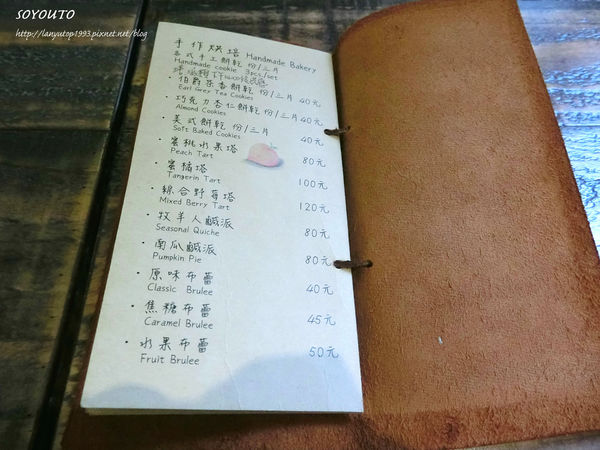 SOYOUTO
http://lanyutop1993.pixnet.net/blog
手作烘培 Handmade Bakery
各式手工餅乾 份/三片
Handmade cookie 3pcs/set
伯爵茶香餅乾 份/三片 40元
Earl Grey Tea Cookies
・巧克力杏仁餅乾 份/三片 40元
Almond Cookies
・美式餅乾 份/三片 40元
Soft Baked Cookies
・蜜桃水果塔 80元
Peach Tart
・蜜橘塔 100元
Tangerin Tart
・綜合野莓塔 120元
Mixed Berry Tart
・牧羊人鹹派 80元
Seasonal Quiche
・南瓜鹹派 80元
Pumpkin Pie
・原味布蕾 40元
Classic Brulee
・焦糖布蕾 45元
Caramel Brulee
・水果布蕾 50元
Fruit Brulee